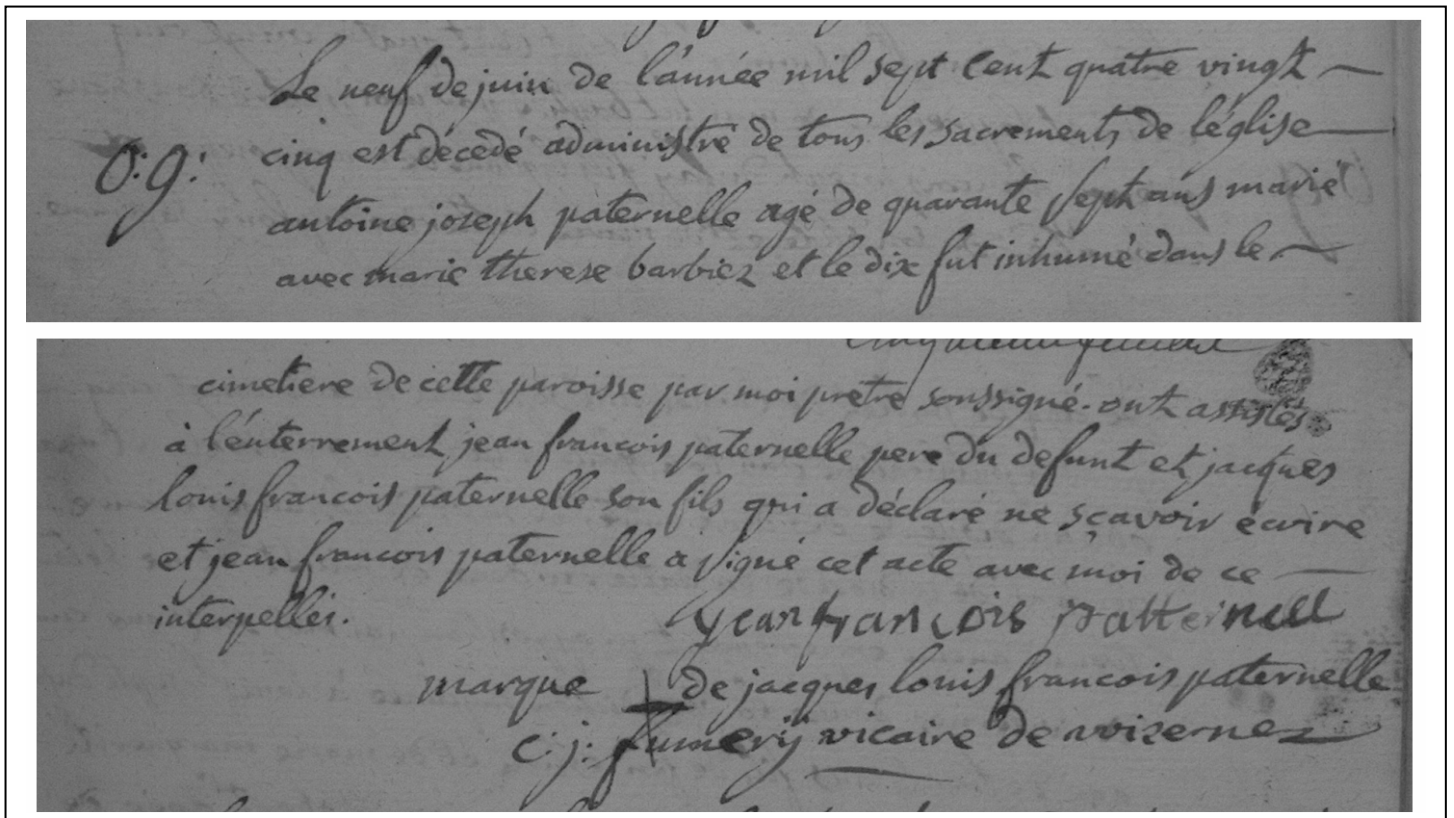 Le neuf de juin de l'année mil sept cent quatre vingt
O: 9: cinq est décédé administré de tous les sacrements de l'église
antoine joseph paternelle agé de quarante sept ans marié
avec marie therese barbiez et le dix fut inhumé dans le
cimetiere de cette paroisse par moi pretre soussigné. ont assistés
à l'énterrement jean francois paternelle pere du defunt et jacques
louis francois paternelle son fils qui a déclaré ne sçavoir écrire
et jean francois paternelle a signé cet acte avec moi de ce
interpellés.
jean francois patternell
marque de jacques louis francois paternelle
c: j: fumery vicaire de wizernes